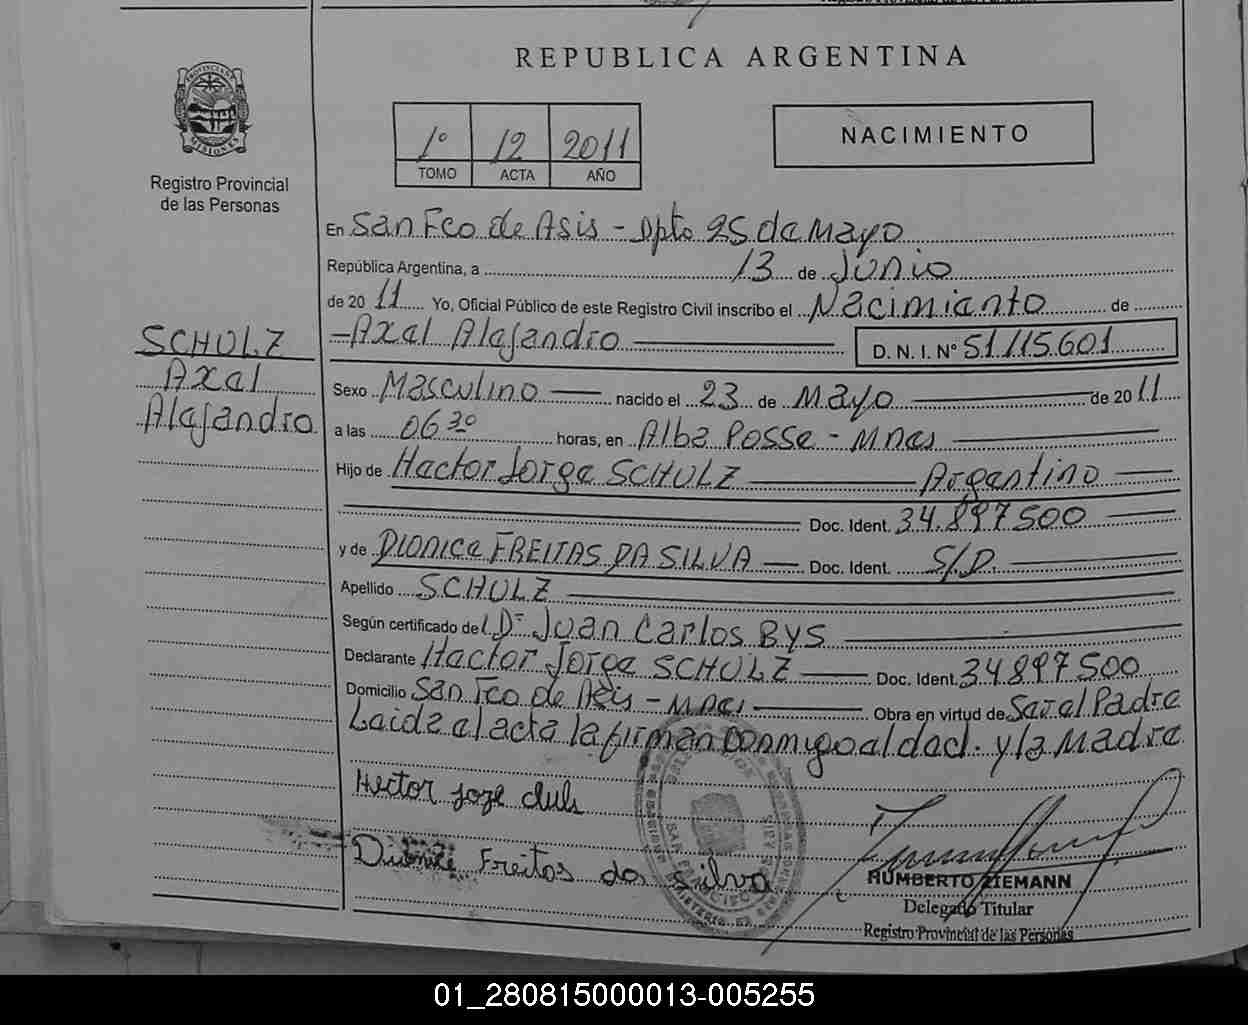 REPUBLICA ARGENTINA
PROVINCIA DE MISIONES
Registro Provincial
de las Personas
1º 12 2011
TOMO ACTA AÑO
NACIMIENTO
En San Fco de Asis - Dpto 25 de Mayo
República Argentina, a 13 de Junio
de 2011 Yo, Oficial Público de este Registro Civil inscribo el Nacimiento de
- Axel Alejandro D. N. I. Nº 51.115.601
SCHULZ
Axel
Alejandro
Sexo Masculino nacido el 23 de Mayo de 2011
a las 06 30 horas, en Alba Posse - Mnes
Hijo de Hector Jorge SCHULZ Argentino
Doc. Ident. 34.897500
y de DIONICE FREITAS DA SILVA Doc. Ident. S/D.
Apellido SCHULZ
Según certificado del Dr Juan Carlos BYS
Declarante Hector Jorge SCHULZ Doc. Ident. 34897500
Domicilio San Fco de Asis - Mnes Obra en virtud de Ser el Padre
Leida el acta la firman conmigo el decl. y la Madre
Hector Joze Chuls
Dionice Freitas da Silva
HUMBERTO ZIEMANN
Delegado Titular
Registro Provincial de las Personas
01_280815000013-005255